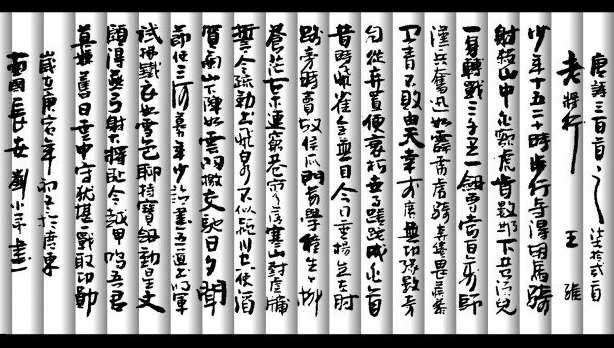 唐詩三百首之柒拾弍首
老将行 王維
少年十五二十時步行夺得胡馬騎
射殺山中白額虎肯數鄴下黃須兒
一身轉戰三千里一劍曾當百萬師
漢兵奮迅如霹靂虜騎奔騰畏蒺藜
卫青不敗由天幸李廣無功緣數奇
自從弃置便衰朽世事蹉跎成白首
昔時飛雀全無目今日垂楊生左肘
路旁時賣故侯瓜門前學種先生柳
蒼茫古木連窮巷寥落寒山對虛牖
誓令疏勒出飛泉不似潁川空使酒
賀蘭山下陣如雲羽檄交馳日夕聞
節使三河募年少詔書五道出將軍
試拂鐵衣如雪色聊持寶劍動星文
願得燕弓射大將恥令越甲鳴吾君
莫嫌舊日雲中守猶堪一戰取功勳
歲在庚寅年初冬於廣東
長安劉小平書